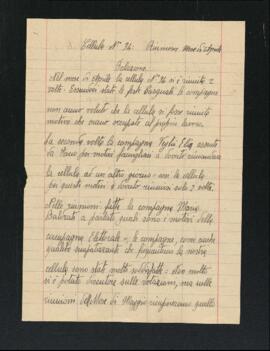 Cellula N° 36: Riunione Mese di Aprile
Relazione
Nel mese di Aprile la cellula N° 36 si è riunita 2
volte. Essendovi state le feste Pasquali le compagne
non anno voluto che la cellula si fosse riunita
motivo che erano occupate al proprio lavoro.
La seconda volta la compagna Veglia Elia assente
da Siena per motivi famigliari si dovette rimandare
la cellula ad un altro giorno: così la cellula
per questi motivi si dovette riunirsi solo 2 volte.
Nelle riunioni fatte la compagna Maria
a parlato quali sono i motivi della
campagna Elettorale: le compagne, come anche
qualche simpatizzante che frequentano la nostra
cellula sono state molto soddisfatte: dove molto
si è potuto discutere sulle votazioni, ma nelle
riunioni del Mese di Maggio ricupereremo quelle